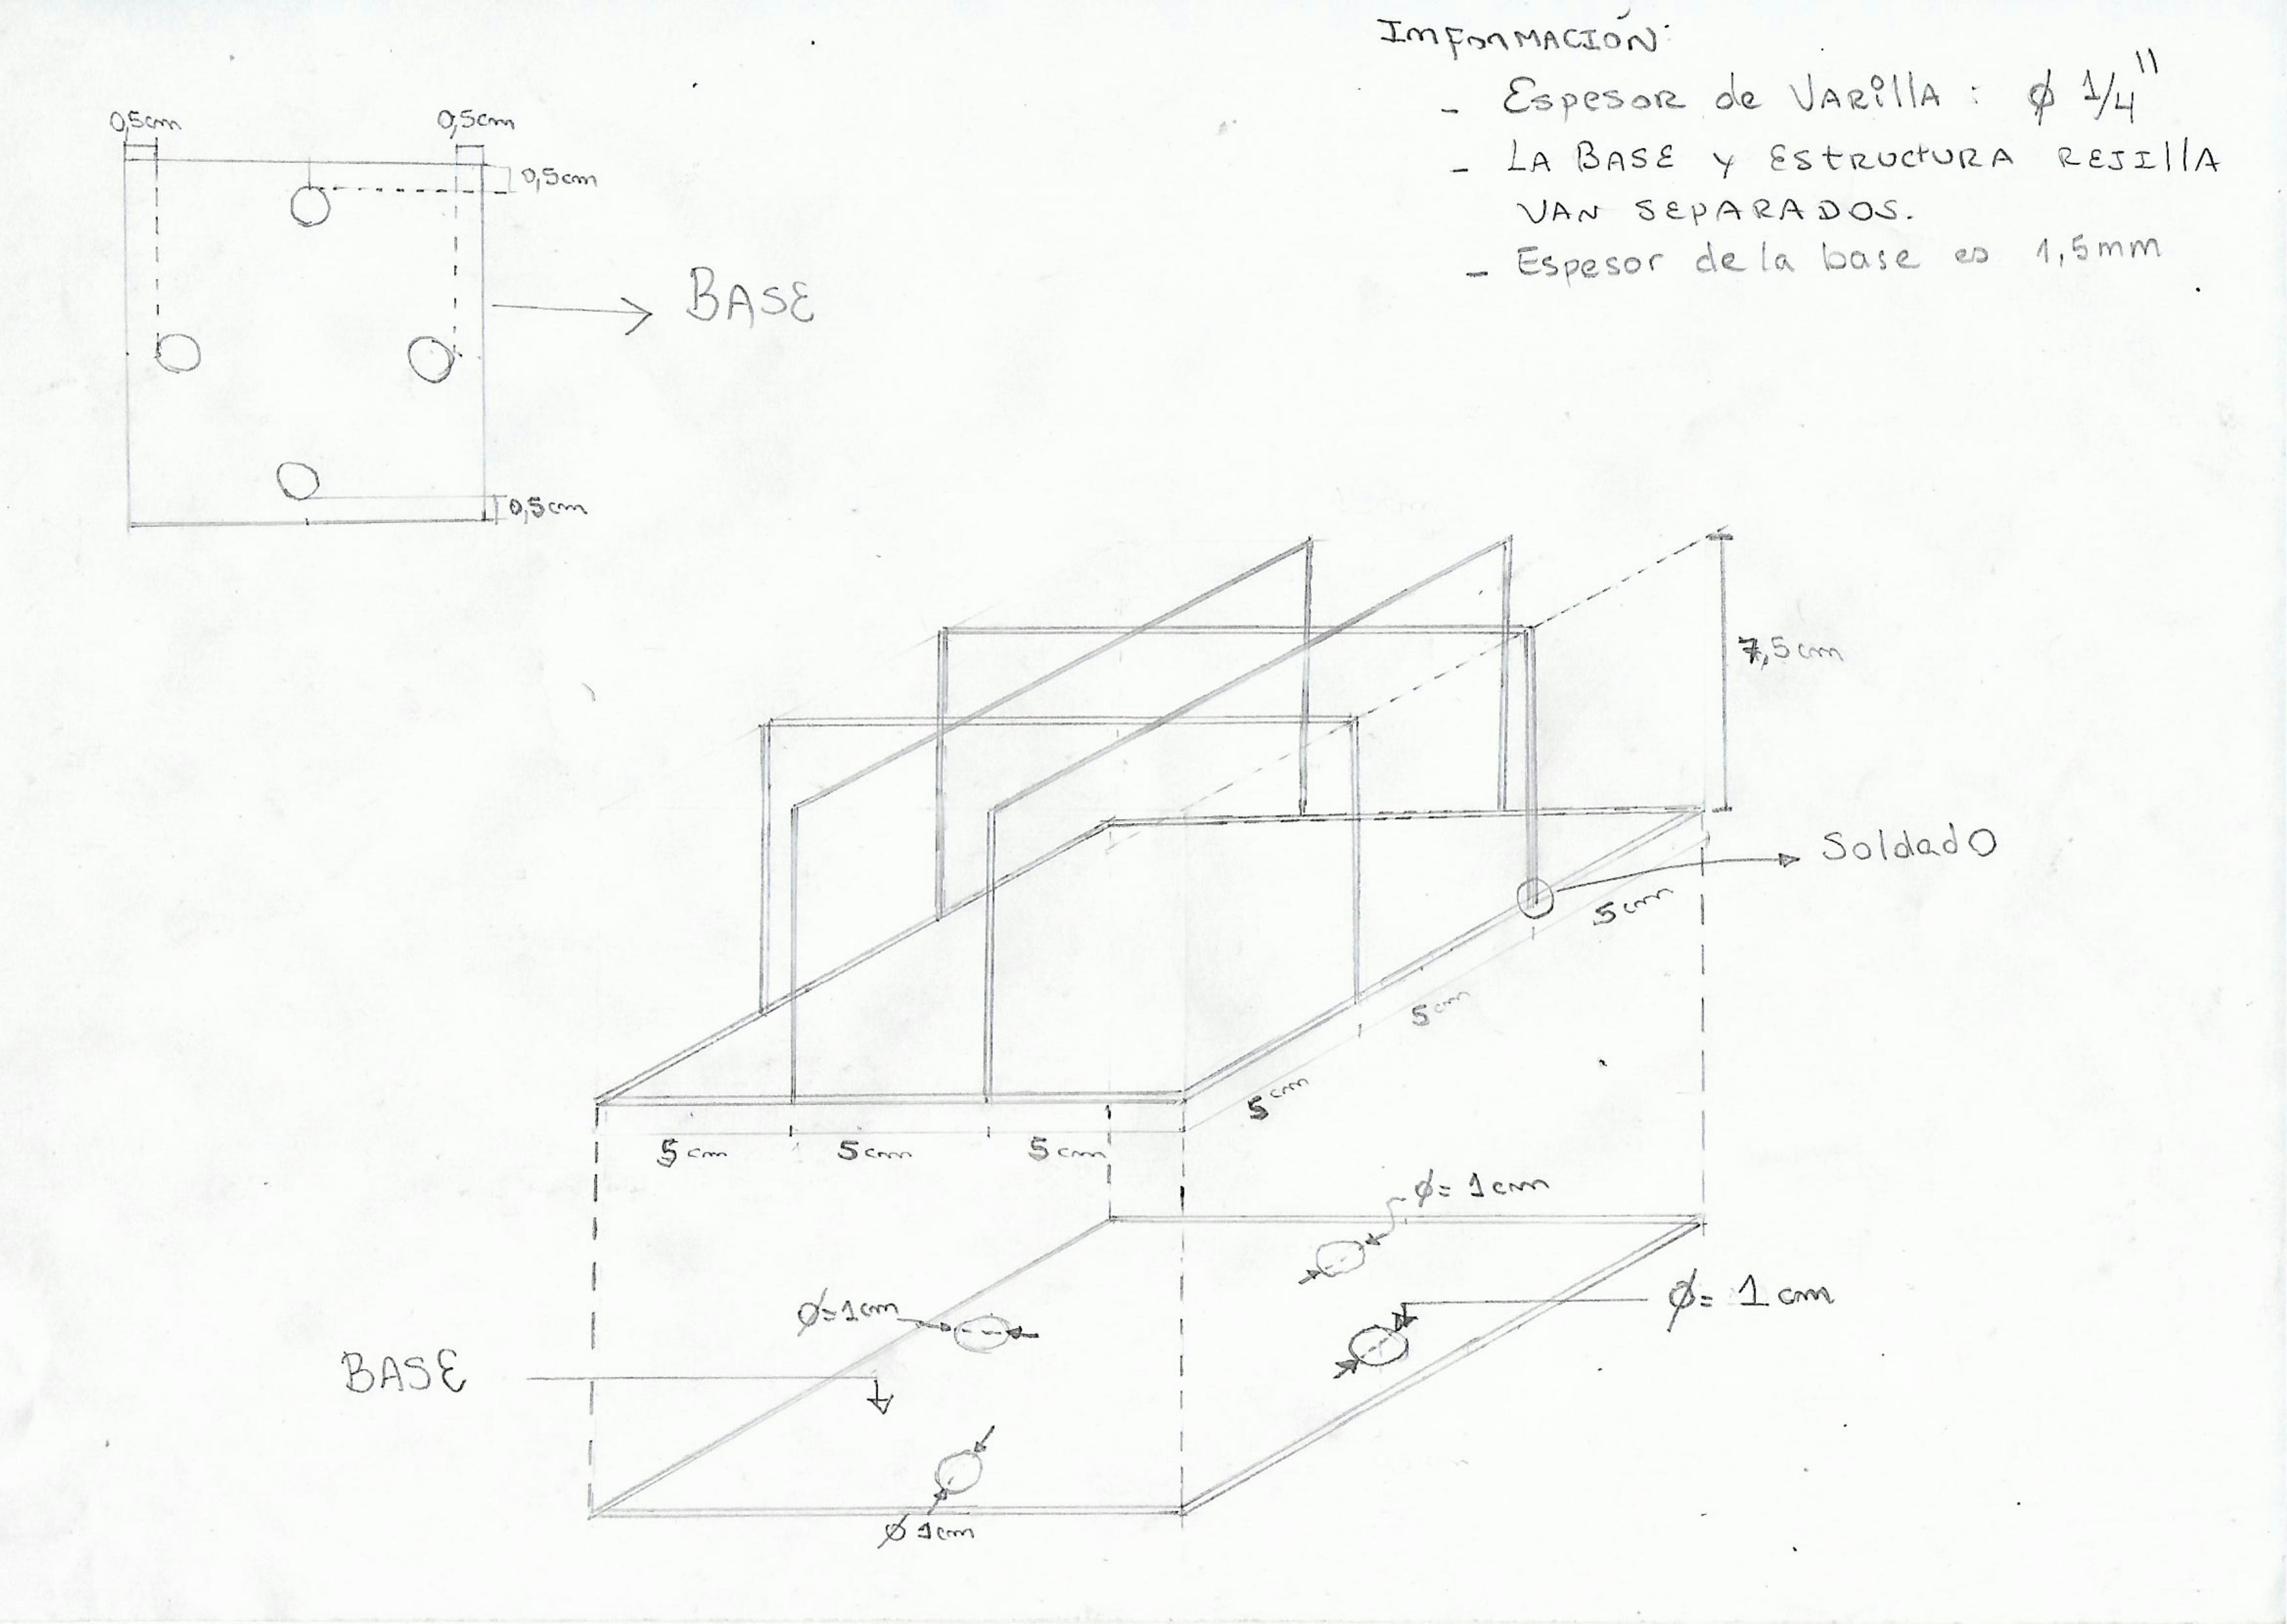 InfoRMACIÓN:
- Espesor de VARillA : ø 1/4"
- LA BASE y EstRUCtURA REJIllA
VAN SEPARADOS.
- Espesor de la base es 1,5mm
0,5cm
0,5cm
0,5cm
BASE
0,5cm
7,5cm
Soldado
5cm
5cm
5cm
5cm
5cm
5cm
ø= 1cm
ø=1cm
ø= 1cm
BASE
ø 1cm